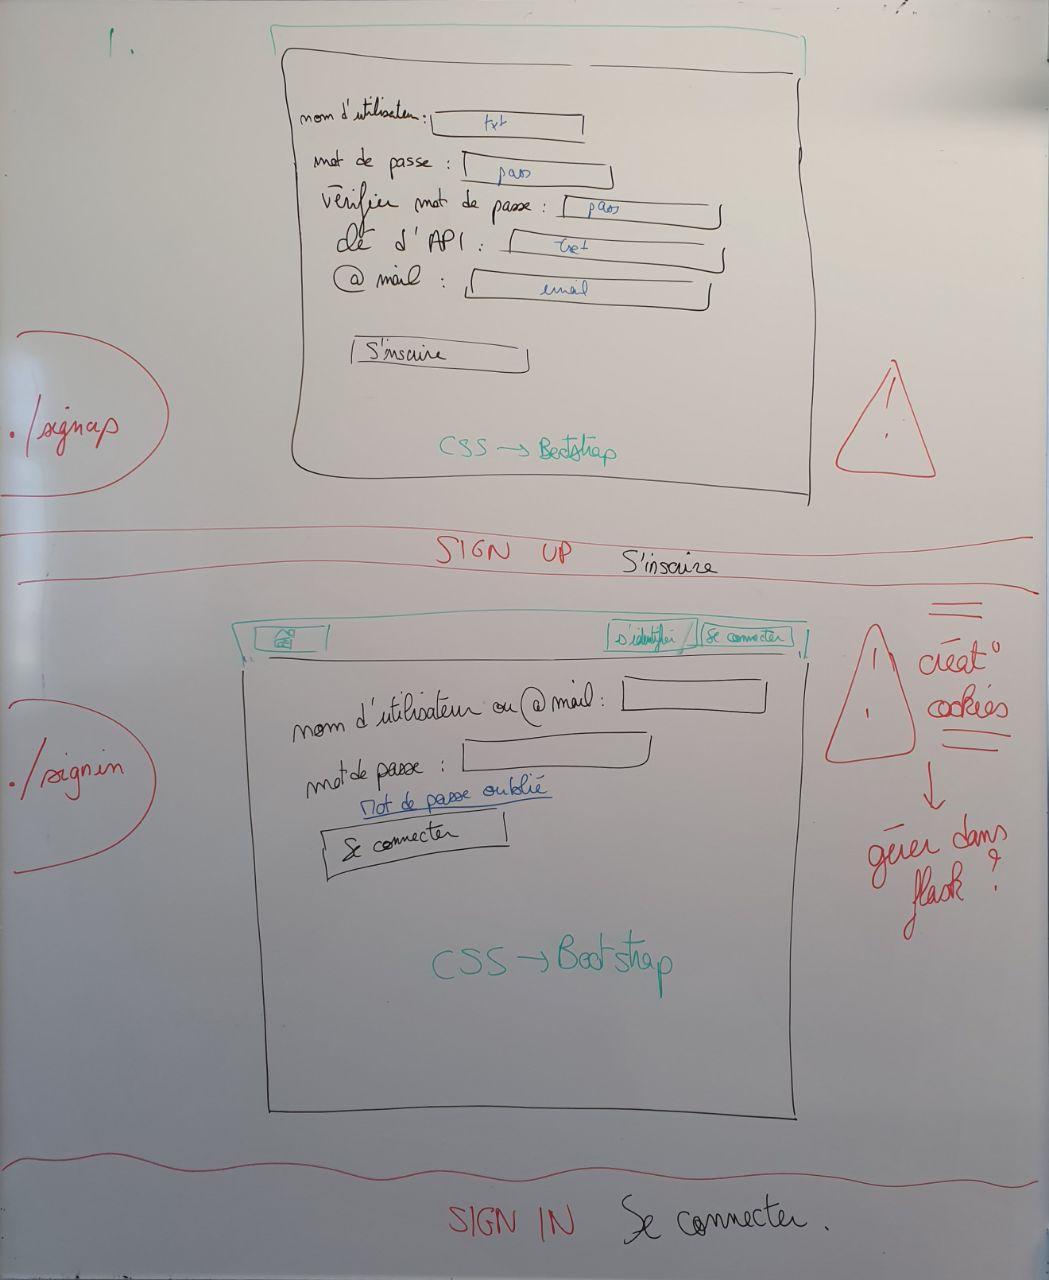 1.
nom d'utilisateur : txt
mot de passe : pass
vérifier mot de passe : pass
clé d'API : txt
@ mail : email
S'inscrire
./signup
!
CSS → Bootstrap
SIGN UP S'inscrire
s'identifier Se connecter
nom d'utilisateur ou @ mail :
mot de passe :
Mot de passe oublié
Se connecter
./signin
!
créat°
cookies
gérer dans
flask ?
CSS → Bootstrap
SIGN IN Se connecter.